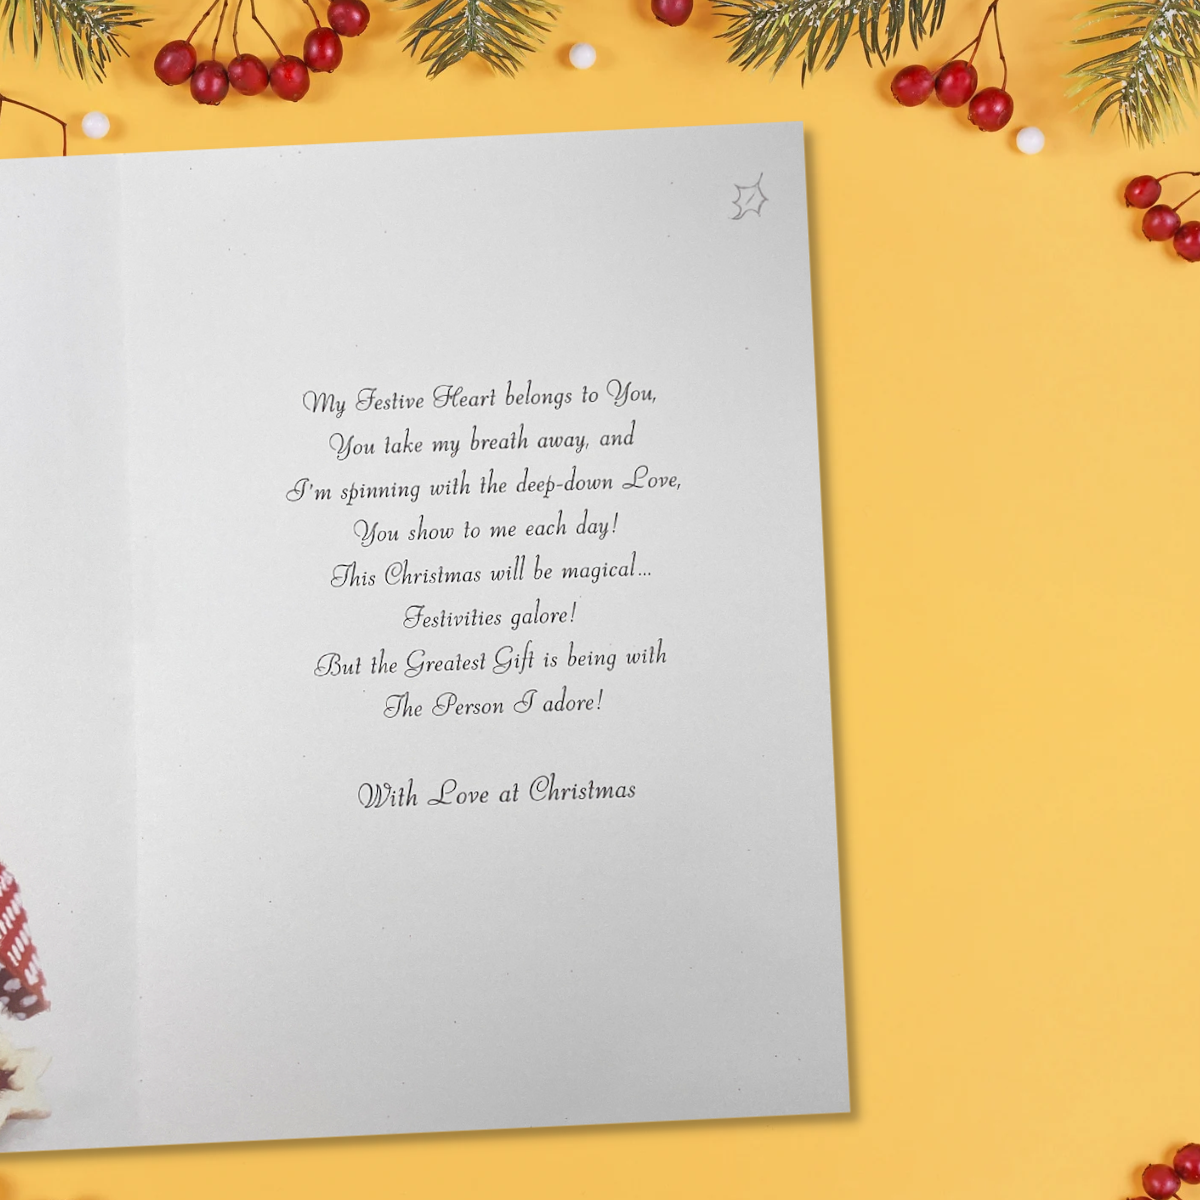 My Festive Heart belongs to You,
You take my breath away, and
I'm spinning with the deep-down Love,
You show to me each day!
This Christmas will be magical...
Festivities galore!
But the Greatest Gift is being with
The Person I adore!
With Love at Christmas